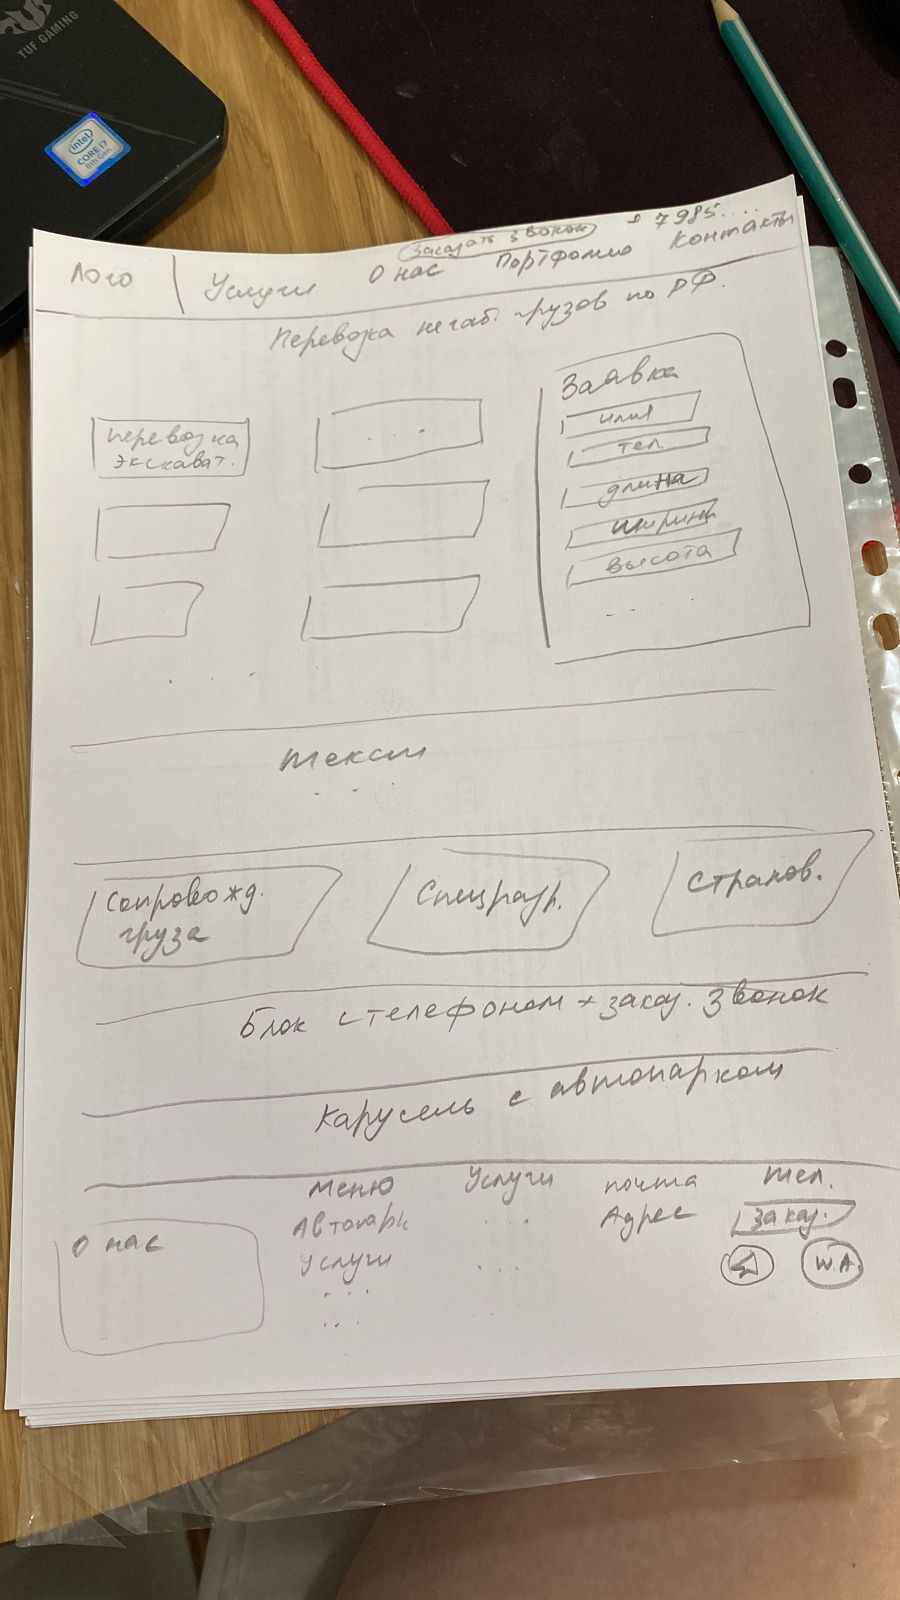 TUF GAMING
intel
CORE i7
8th Gen
Заказать звонок
7985....
Лого
Услуги
О нас
Портфолио
Контакты
Перевозка негаб. грузов по РФ.
перевозка
экскават.
...
Заявка
имя
тел
длина
ширина
высота
...
....
текст
...
Сопровожд.
груза
Спецразр.
Страхов.
Блок с телефоном + заказ. звонок
Карусель с автопарком
О нас
Меню
Автопарк
Услуги
...
...
Услуги
...
...
почта
Адрес
тел.
Заказ.
W.A.